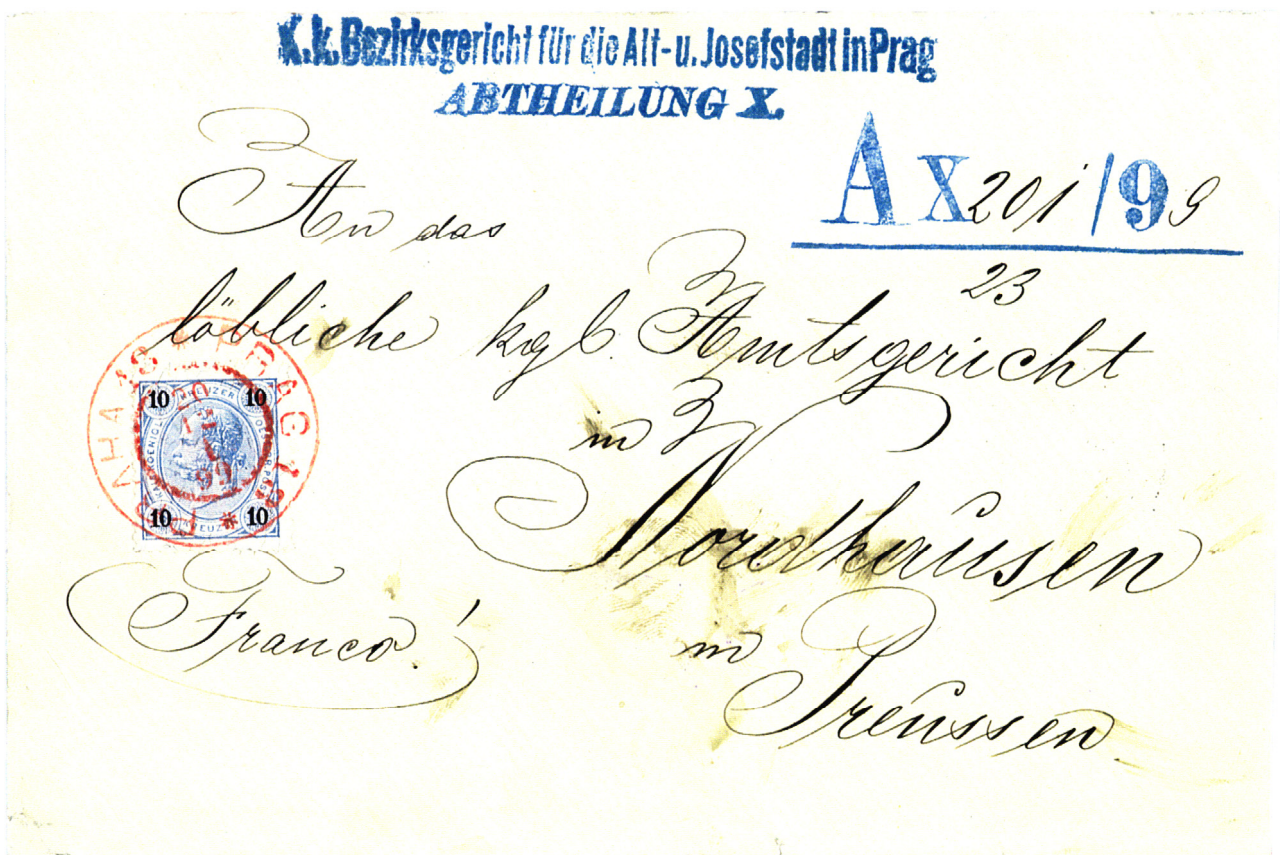 K.k. Bezirksgericht für die Alt- u. Josefstadt in Prag
ABTHEILUNG X.
A X 201/99
23
An das
löbliche kgl. Amtsgericht
in
Nordhausen
in
Preussen
Franco!
PRAG 1
99
10 KREUZER 10
10 10